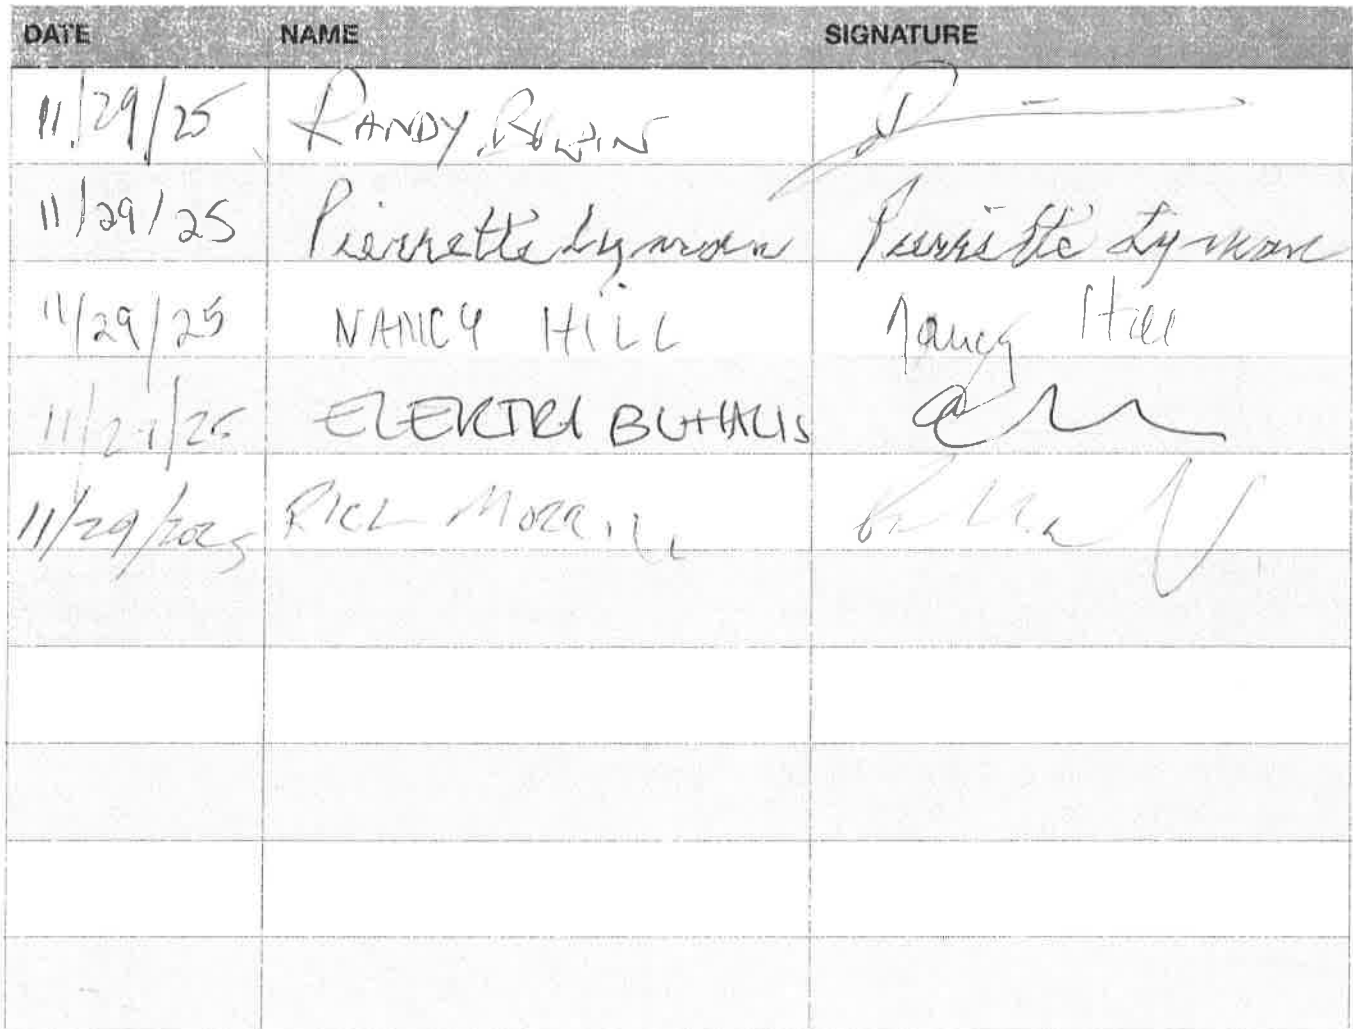 DATE NAME SIGNATURE
11/29/25 RANDY
11/29/25 Pierrette Lyman Pierrette Lyman
11/29/25 NANCY HILL Nancy Hill
11/29/25 ELEKTRA BUHALIS
11/29/2025 RICH MORRILL